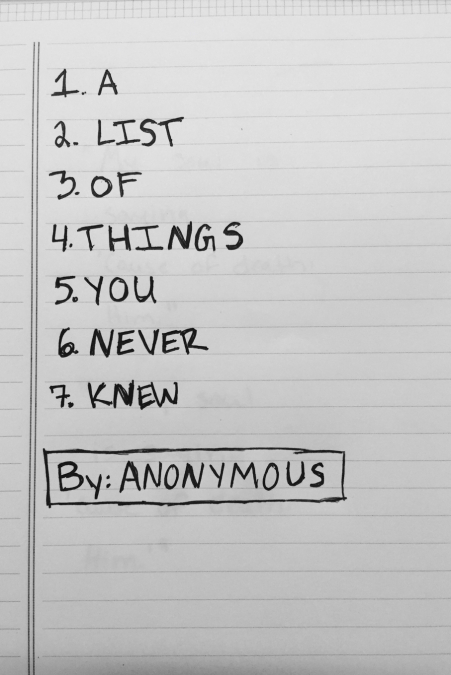 1. A
2. LIST
3. OF
4. THINGS
5. YOU
6. NEVER
7. KNEW
By: ANONYMOUS